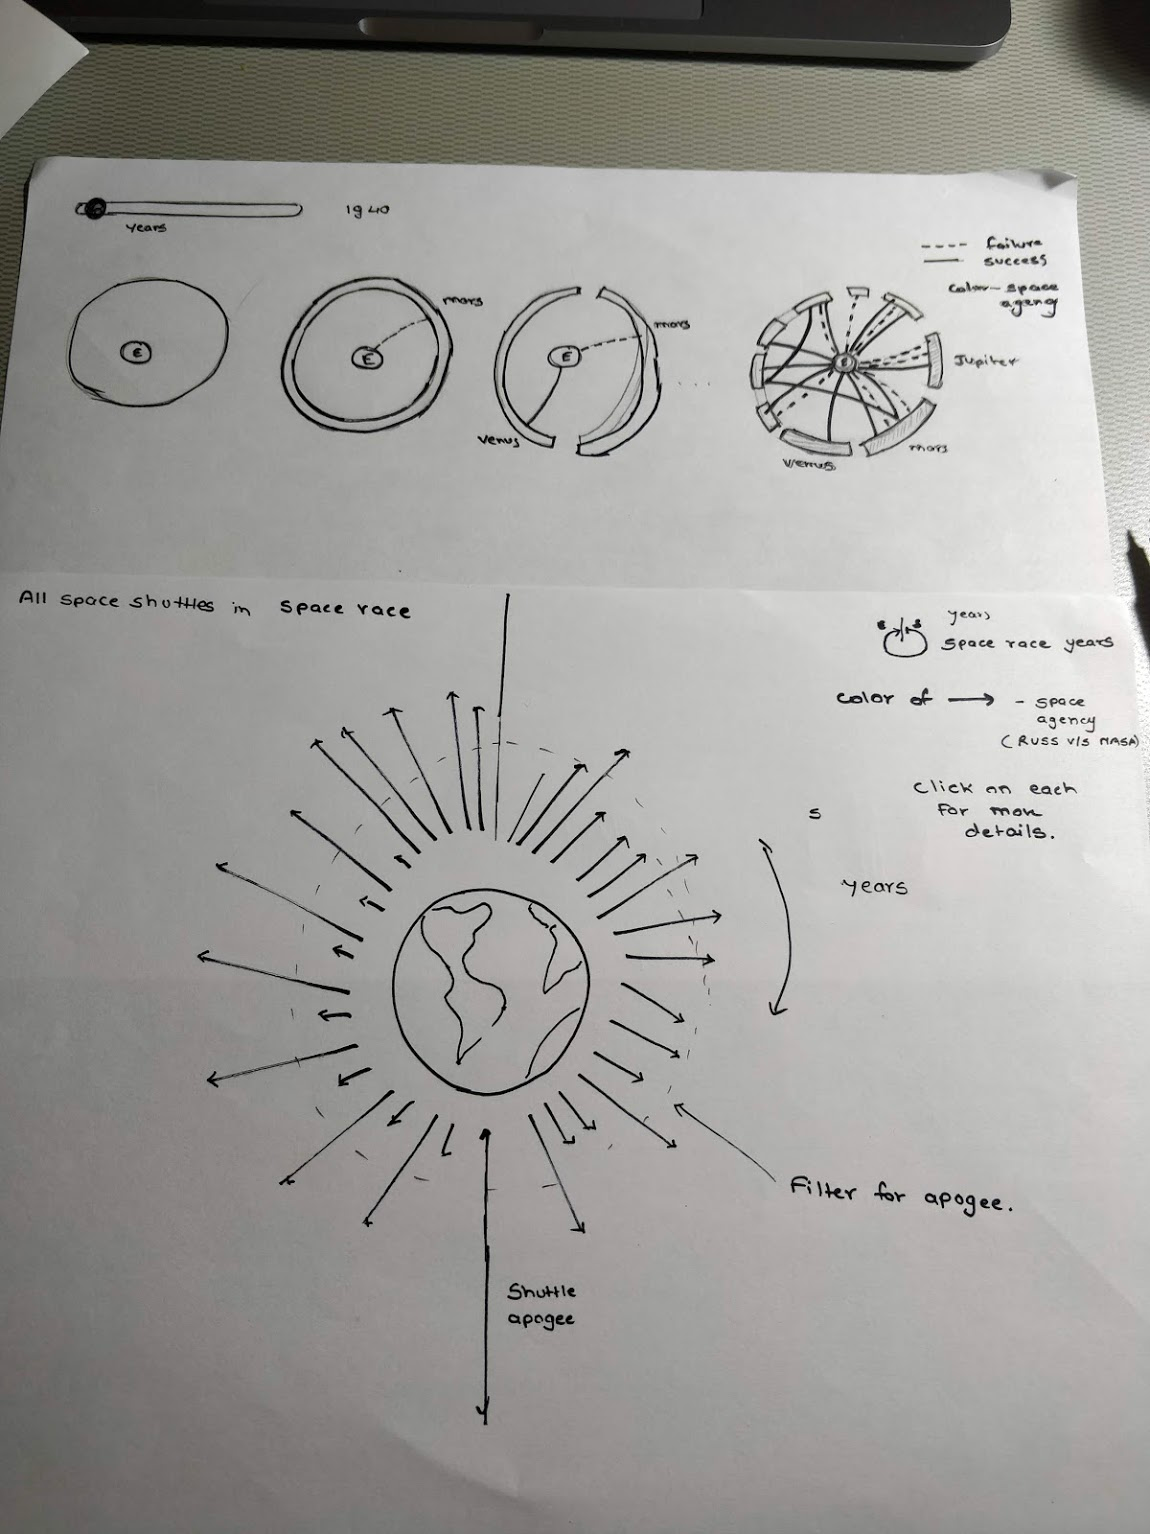 years
1940
---- failure
— success
Color - space
agency
E
E
mars
E
mars
Venus
E
Jupiter
mars
Venus
All space shuttles in space race
years
E S
Space race years
Color of → - space
agency
(RUSS V/S NASA)
Click on each
for more
details.
s
years
Filter for apogee.
Shuttle
apogee